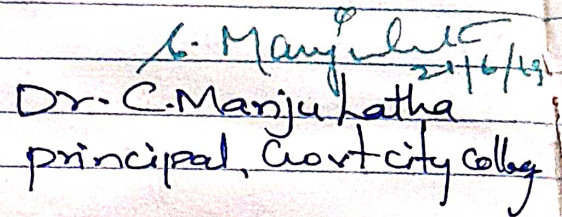 C. Manjulatha
21/6/19
Dr. C. Manju Latha
principal, Govt city Colleg